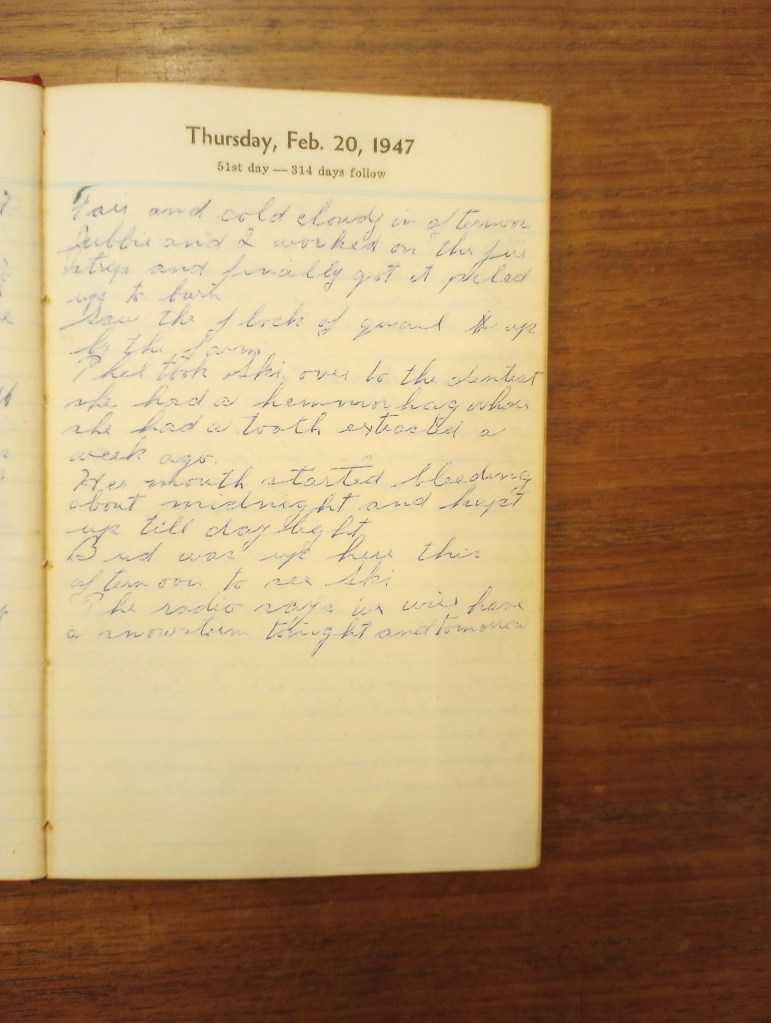 Thursday, Feb. 20, 1947
51st day — 314 days follow
Fair and cold cloudy in afternoon
and I worked on the fire
strip and finally got it piled
up to burn
Saw the flock of quail up
by the farm
took Ski over to the dentist
she had a hemmorhag where
she had a tooth extracted a
week ago.
Her mouth started bleeding
about midnight and kept
up till day light
Bud was up here this
afternoon to see Ski
The radio says we will have
a snowstorm tonight and tomorrow